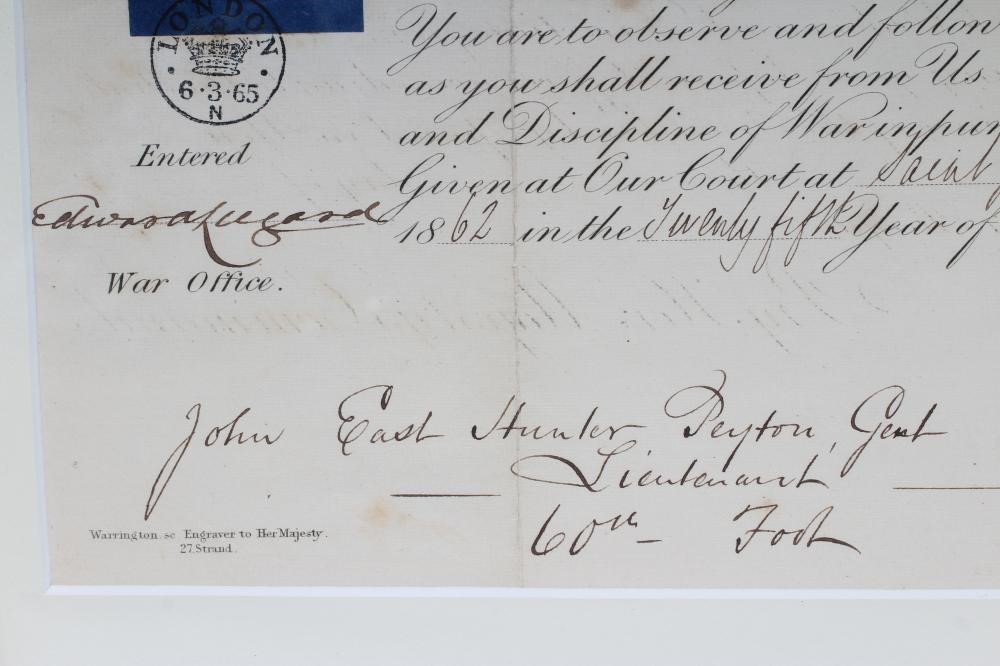 LONDON
6·3·65
N
Entered
Edward Lugard
War Office.
You are to observe and follow
as you shall receive from Us
and Discipline of War in pur
Given at Our Court at Saint
1862 in the Twenty fifth Year of
John East Hunter Peyton, Gent
Lieutenant
60th Foot
Warrington. sc Engraver to Her Majesty.
27. Strand.